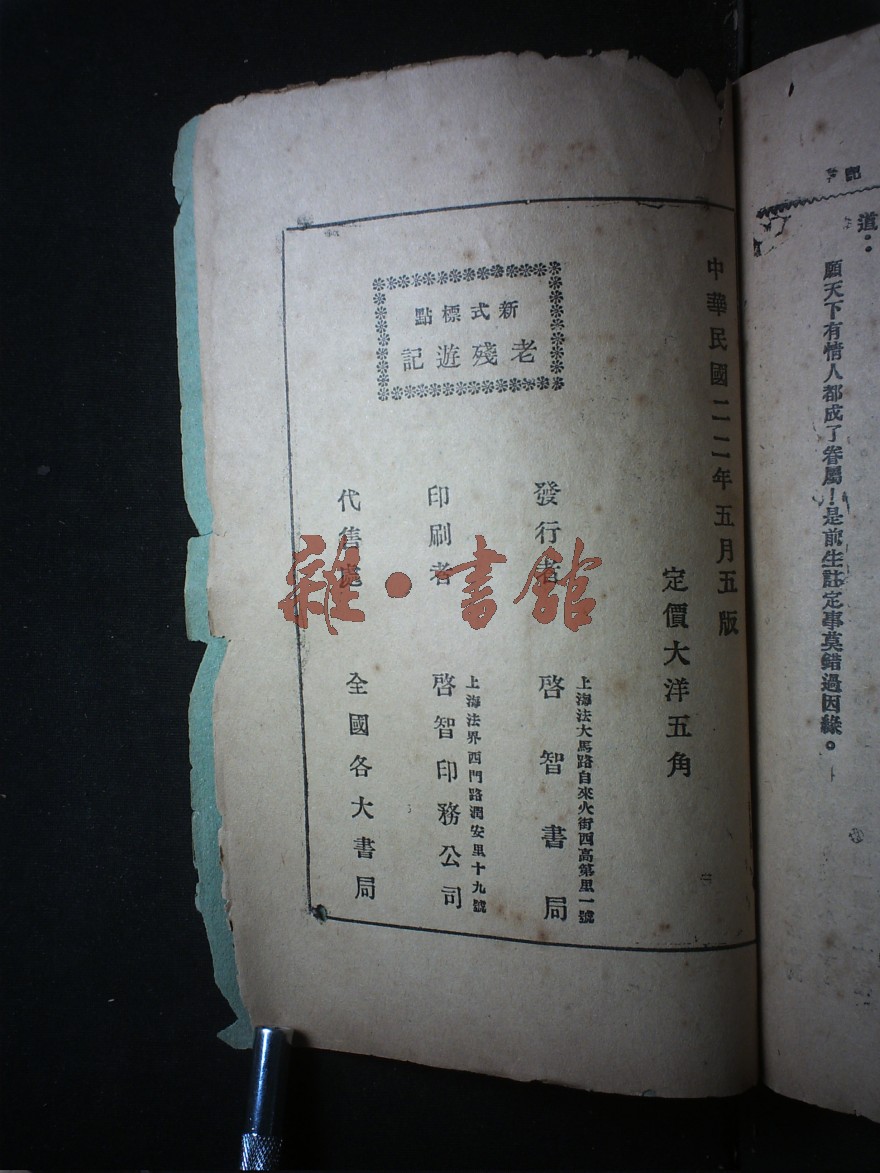 道：
願天下有情人都成了眷屬！是前生註定事莫錯過因緣。
中華民國二二年五月五版
定價大洋五角
新式標點
老殘遊記
發行者
上海法大馬路自來火街西高第里一號
啓智書局
印刷者
上海法界西門路潤安里十九號
啓智印務公司
代售處
全國各大書局
雜·書館